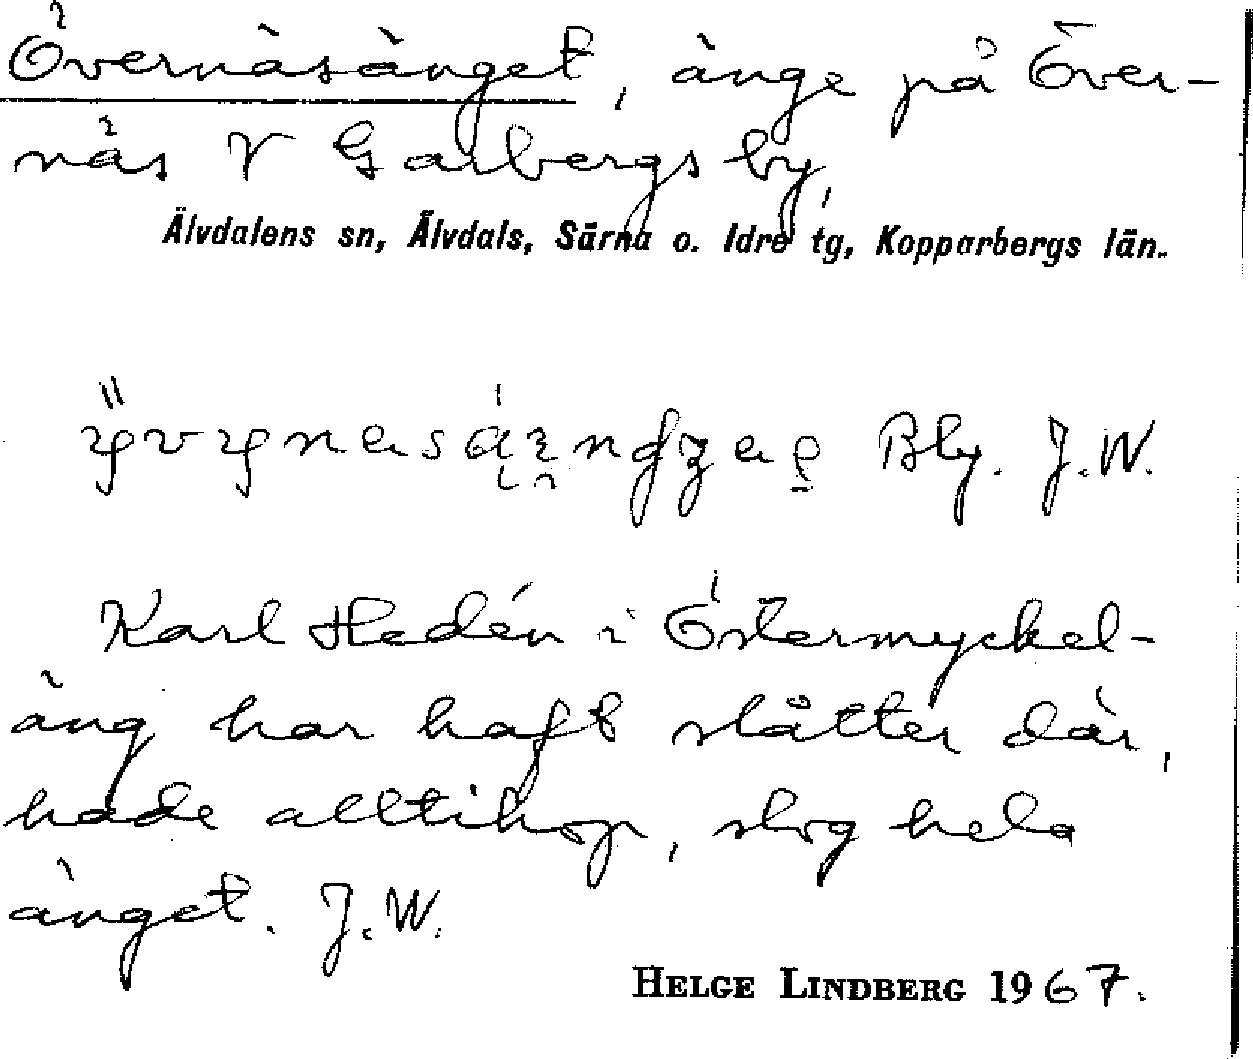 Övernäsänget, änge på Över-
näs V Gaſbergs by,
Älvdalens sn, Älvdals, Särna o. Idre tg, Kopparbergs län.
Bly. J.W.
Karl Hedén i Östermyckel-
äng har haft slåtter där,
hade alltihop, slog hela
änget. J.W.
HELGE LINDBERG 1967.